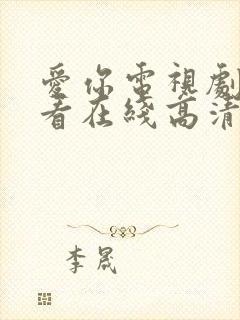 愛你電視劇
看在綫高清
李晟